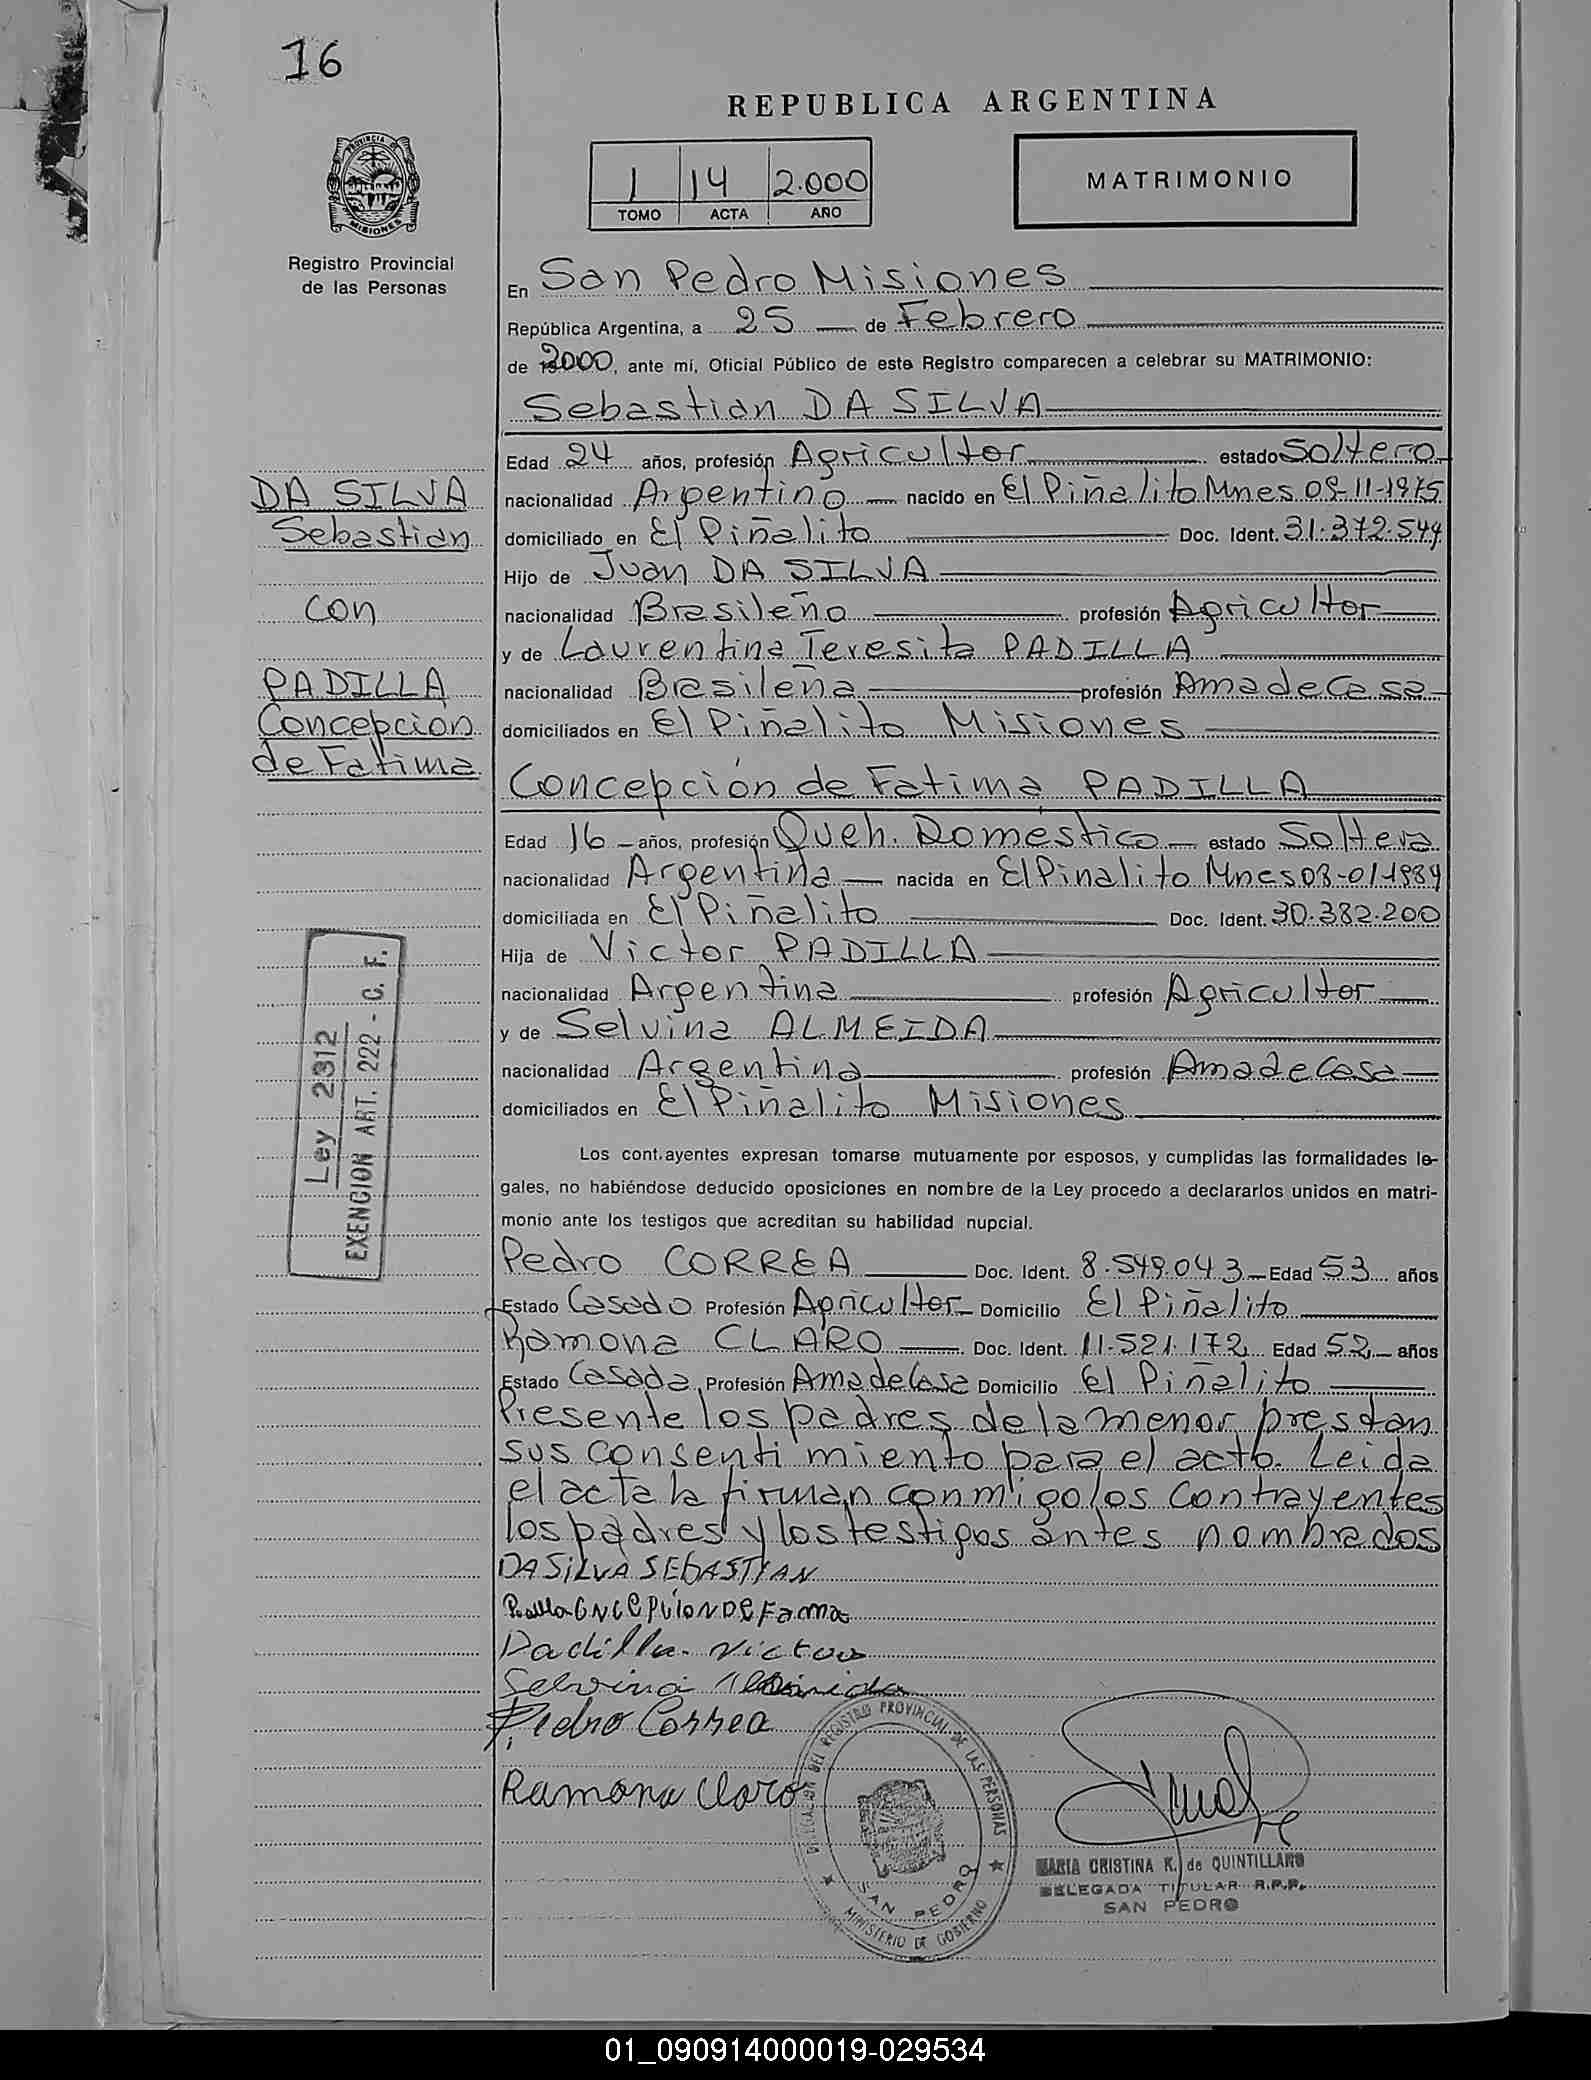 16
REPUBLICA ARGENTINA
PROVINCIA DE MISIONES
Registro Provincial
de las Personas
1 14 2.000
TOMO ACTA AÑO
MATRIMONIO
En San Pedro Misiones
República Argentina, a 25 de Febrero
de 2000, ante mí, Oficial Público de este Registro comparecen a celebrar su MATRIMONIO:
Sebastian DA SILVA
Edad 24 años, profesión Agricultor estado Soltero
nacionalidad Argentino nacido en El Piñalito Mnes 09-11-1975
domiciliado en El Piñalito Doc. Ident. 31.372.544
Hijo de Juan DA SILVA
nacionalidad Brasileño profesión Agricultor
y de Laurentina Teresita PADILLA
nacionalidad Brasileña profesión Ama de Casa
domiciliados en El Piñalito Misiones
DA SILVA
Sebastian
con
PADILLA
Concepción
de Fatima
Concepción de Fatima PADILLA
Edad 16 años, profesión Queh. Domestico estado Soltera
nacionalidad Argentina nacida en El Pinalito Mnes 08-01-1984
domiciliada en El Piñalito Doc. Ident. 30.382.200
Hija de Victor PADILLA
nacionalidad Argentina profesión Agricultor
y de Selvina ALMEIDA
nacionalidad Argentina profesión Ama de Casa
domiciliados en El Piñalito Misiones
Ley 2312
EXENCION ART. 222 - C. F.
Los cont.ayentes expresan tomarse mutuamente por esposos, y cumplidas las formalidades le-
gales, no habiéndose deducido oposiciones en nombre de la Ley procedo a declararlos unidos en matri-
monio ante los testigos que acreditan su habilidad nupcial.
Pedro CORREA Doc. Ident. 8.549.043 Edad 53 años
Estado Casado Profesión Agricultor Domicilio El Piñalito
Ramona CLARO Doc. Ident. 11.521.172 Edad 52 años
Estado Casada Profesión Ama de Casa Domicilio El Piñalito
Presente los padres de la menor prestan
sus consentimiento para el acto. Leida
el acta la firman conmigo los contrayentes
los padres y los testigos antes nombrados
DA SILVA SEBASTIAN
Padilla CNCEPCION DE Fama
Padilla Victor
Selvina Almeida
Pedro Correa
Ramona Claro
DELEGACION DEL REGISTRO PROVINCIAL DE LAS PERSONAS
SAN PEDRO
MINISTERIO DE GOBIERNO
MARIA CRISTINA K. de QUINTILLANO
DELEGADA TITULAR R.P.P.
SAN PEDRO
01_090914000019-029534